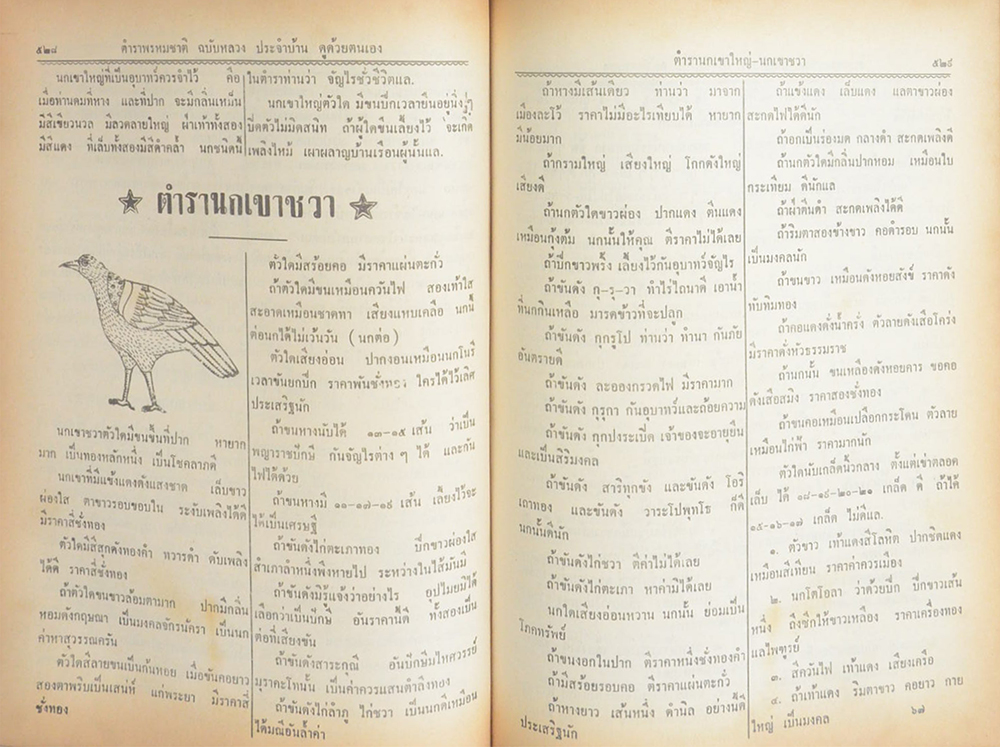 ๕๒๘ ตำราพรหมชาติ ฉบับหลวง ประจำบ้าน ดูด้วยตนเอง
นกเขาใหญ่ที่เป็นอุบาทว์ควรจำไว้ คือ
เมื่อท่านดมที่หาง และที่ปาก จะมีกลิ่นเหม็น
มีสีเขียวนวล มีลวดลายใหญ่ ฝ่าเท้าทั้งสอง
มีสีแดง ที่เล็บทั้งสองมีสีดำคล้ำ นกชนิดนี้
ในตำราท่านว่า จัญไรชั่วชีวิตแล.
นกเขาใหญ่ตัวใด มีขนปีกเวลายืนอยู่นิ่งๆ
ปิดตัวไม่มิดสนิท ถ้าผู้ใดขืนเลี้ยงไว้ จะเกิด
เพลิงไหม้ เผาผลาญบ้านเรือนผู้นั้นแล.
ตำรานกเขาชวา
นกเขาชวาตัวใดมีขนขึ้นที่ปาก หายาก
มาก เป็นทองหลักหนึ่ง เป็นโชคลาภดี
นกเขาที่มีแข้งแดงดังแสงชาด เล็บขาว
ผ่องใส ตาขาวรอบขอบใน ระงับเพลิงได้ดี
มีราคาสี่ชั่งทอง
ตัวใดมีสีสุกดังทองคำ ทวารดำ ดับเพลิง
ได้ดี ราคาสี่ชั่งทอง
ถ้าตัวใดขนขาวล้อมตามาก ปากมีกลิ่น
หอมดังกฤษณา เป็นมงคลจักรนัครา เป็นนก
ค่าหาสุวรรณครัน
ตัวใดสีลายขนเป็นก้นหอย เมื่อขันคอยาว
สองตาพริบเป็นเสน่ห์ แก่พระยา มีราคาสี่
ชั่งทอง
ตัวใดมีสร้อยคอ มีราคาแผ่นตะกั่ว
ถ้าตัวใดมีขนเหมือนควันไฟ สองเท้าใส
สะอาดเหมือนชาดทา เสียงแหบเคลือ นกนี้
ต่อนกได้ไม่เว้นวัน (นกต่อ)
ตัวใดเสียงอ่อน ปากงอนเหมือนนกโนรี
เวลาขันยกปีก ราคาพันชั่งทอง ใครได้ไว้เลิศ
ประเสริฐนัก
ถ้าขนหางนับได้ ๑๓-๑๕ เส้น ว่าเป็น
พญาราชปักษี กันจัญไรต่าง ๆ ได้ และกัน
ไฟได้ด้วย
ถ้าขนหางมี ๑๐-๑๗-๑๙ เส้น เลี้ยงไว้จะ
ได้เป็นเศรษฐี
ถ้าขันดังไก่ตะเภาทอง ปีกขาวผ่องใส
สำเภาลำหนึ่งพึงหายไป ระหว่างในไส้มันมี
ถ้าขันดังมีรู้แจ้งว่าอย่างไร อุปไมยมิได้
เลือกว่าเป็นปักษี อันราคานี้ดี ทั้งสองเป็น
ต่อที่เสียงขัน
ถ้าขันดังสาระกุณี อันปักษิมไหศวรรย์
มุราคะโหนั้น เป็นค่าควรแสนตำลึงทอง
ถ้าขันดังไก่ลำภู ไก่ชวา เป็นนกดีเหมือน
ได้มณีอันล้ำค่า
ตำรานกเขาใหญ่-นกเขาชวา ๕๒๙
ถ้าหางมีเส้นเดียว ท่านว่า มาจาก
เมืองละโว้ ราคาไม่มีอะไรเทียบได้ หายาก
มีน้อยมาก
ถ้ากรามใหญ่ เสียงใหญ่ โกกดังใหญ่
เสียงดี
ถ้านกตัวใดขาวผ่อง ปากแดง ตีนแดง
เหมือนกุ้งต้ม นกนั้นให้คุณ ตีราคาไม่ได้เลย
ถ้าปีกขาวพริ้ง เลี้ยงไว้กันอุบาทว์จัญไร
ถ้าขันดัง กุ-รุ-วา ทำไร่ไถนาดี เอาน้ำ
ที่นกกินเหลือ มารดข้าวที่จะปลูก
ถ้าขันดัง กุกรูโป ท่านว่า ทำนา กันภัย
อันตรายดี
ถ้าขันดัง ละอองกรวดไฟ มีราคามาก
ถ้าขันดัง กุรุกา กันอุบาทว์และถ้อยความ
ถ้าขันดัง กุกปงระเบ็ด เจ้าของจะอายุยืน
และเป็นสิริมงคล
ถ้าขันดัง สาริทุกขัง และขันดัง โอริ
เถาทอง และขันดัง วาระโปพุทโร ก็ดี
นกนั้นดีนัก
ถ้าขันดังไก่ชวา ตีค่าไม่ได้เลย
ถ้าขันดังไก่ตะเภา หาค่ามิได้เลย
นกใดเสียงอ่อนหวาน นกนั้น ย่อมเป็น
โภคทรัพย์
ถ้าขนงอกในปาก ตีราคาหนึ่งชั่งทองคำ
ถ้ามีสร้อยรอบคอ ตีราคาแผ่นตะกั่ว
ถ้าหางยาว เส้นหนึ่ง ดำนิล อย่างนี้ดี
ประเสริฐนัก
ถ้าแข้งแดง เล็บแดง แลตาขาวผ่อง
สะกดไฟได้ดีนัก
ถ้าอกเป็นร่องมด กลางดำ สะกดเพลิงดี
ถ้านกตัวใดมีกลิ่นปากหอม เหมือนใบ
กระเทียม ดีนักแล
ถ้าฝ่าตีนดำ สะกดเพลิงได้ดี
ถ้าริมตาสองข้างขาว คอดำรอบ นกนั้น
เป็นมงคลนัก
ถ้าขนขาว เหมือนดังหอยสังข์ ราคาดัง
ทับทิมทอง
ถ้าคอแดงดั่งน้ำครั่ง ตัวลายดังเสือโคร่ง
มีราคาดั่งหัวธรรมราช
ถ้านกนั้น ขนเหลืองดังหอยคาร ขอคอ
ดังเสือสมิง ราคาสองชั่งทอง
ถ้าขนคอเหมือนเปลือกกระโดน ตัวลาย
เหมือนไก่ฟ้า ราคามากนัก
ตัวใดนับเกล็ดนิ้วกลาง ตั้งแต่เข่าตลอด
เล็บ ได้ ๑๘-๑๙-๒๐-๒๑ เกล็ด ดี ถ้าได้
๑๕-๑๖-๑๗ เกล็ด ไม่ดีแล.
๑. ตัวขาว เท้าแดงสีโลหิต ปากชิดแดง
เหมือนสีเทียน ราคาค่าควรเมือง
๒. นกโตโอลา ว่าด้วยปีก ปีกขาวเส้น
หนึ่ง ถึงซีกให้ขาวเหลือง ราคาเครื่องทอง
แลไพฑูรย์
๓. สีควันไฟ เท้าแดง เสียงเครือ
๔. ถ้าเท้าแดง ริมตาขาว คอยาว กาย
ใหญ่ เป็นมงคล
๖๗